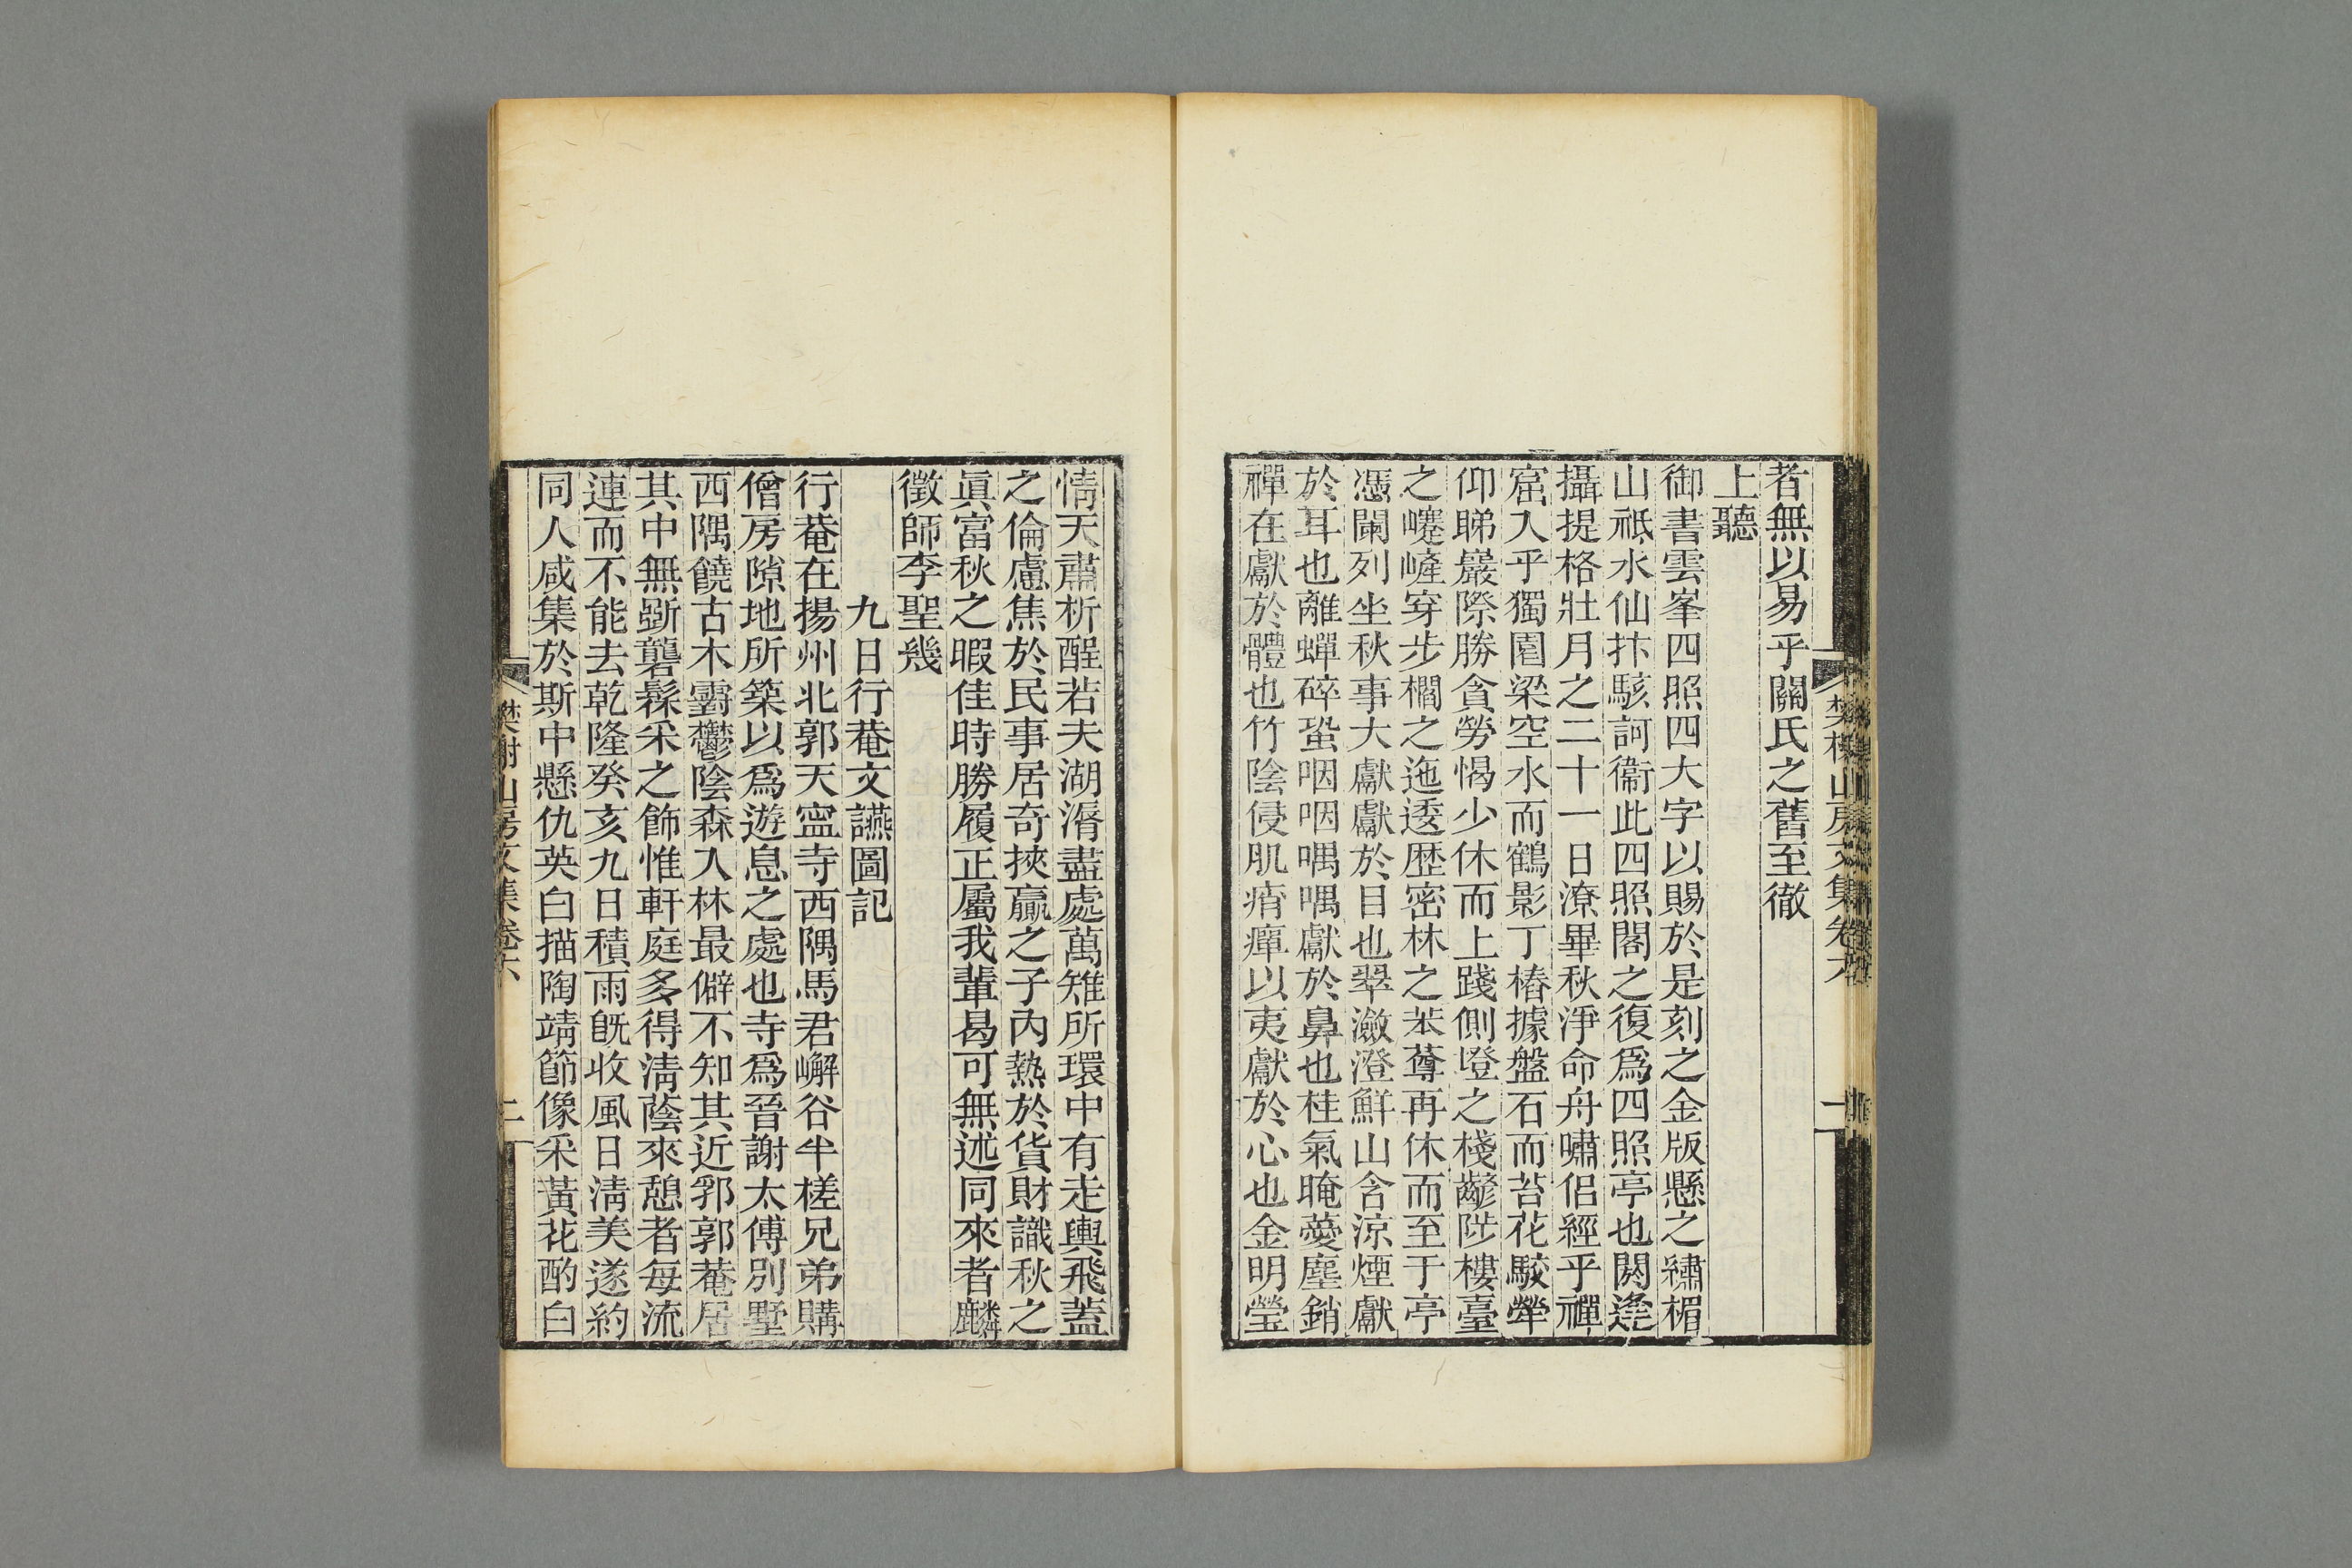 者無以易乎關氏之舊至徹
上聽
御書雲峯四照四大字以賜於是刻之金版懸之繡楣
山祇水仙抃駭訶衞此四照閣之復爲四照亭也閼逢
攝提格壯月之二十一日潦畢秋淨命舟嘯侶經乎禪
窟入乎獨園梁空水而鶴影丁樁據盤石而苔花駮犖
仰睇巖際勝貪勞愒少休而上踐側墱之棧齴陟樓臺
之㠊嵼穿步櫩之迤逶歷密林之苯䔿再休而至于亭
憑闌列坐秋事大獻獻於目也翠瀲澄鮮山含涼煙獻
於耳也離蟬碎蛩咽咽喁喁獻於鼻也桂氣晻薆塵銷
禪在獻於體也竹陰侵肌痟癉以夷獻於心也金明瑩
情天肅析酲若夫湖漘盡處萬雉所環中有走輿飛蓋
之倫慮焦於民事居奇挾贏之子內熱於貨財識秋之
眞富秋之暇佳時勝履正屬我輩曷可無述同來者麟
徵師李聖幾
九日行菴文讌圖記
行菴在揚州北郭天寍寺西隅馬君嶰谷半槎兄弟購
僧房隙地所築以爲遊息之處也寺爲晉謝太傅別墅
西隅饒古木霨鬱陰森入林最僻不知其近郛郭菴居
其中無斲礱髹采之飾惟軒庭多得淸蔭來憩者每流
連而不能去乾隆癸亥九日積雨旣收風日淸美遂約
同人咸集於斯中懸仇英白描陶靖節像采黃花酌白
樊榭山房文集卷六
二